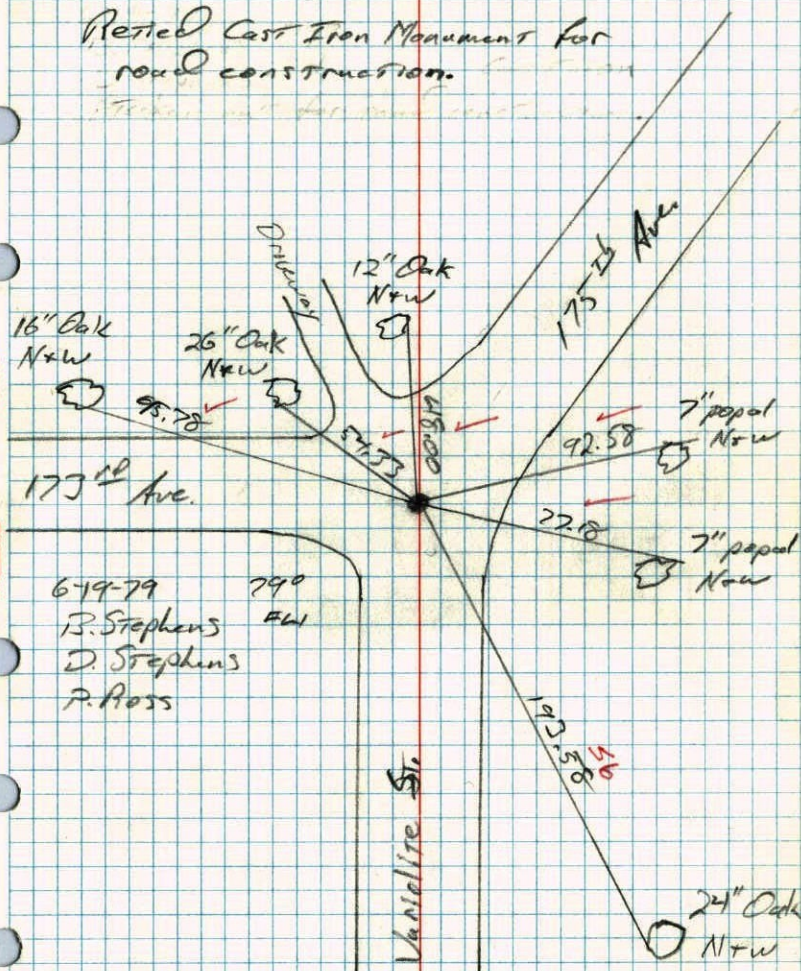 Retied Cast Iron Monument for
road construction.
Driveway
12" Oak
N+W
175th Ave.
16" Oak
N+W
26" Oak
N+W
95.78
54.33
48.00
92.58
7" popal
N+W
173rd Ave.
77.18
7" popal
N+W
6-19-79 79°
B. Stephens
D. Stephens
P. Ross
193.58
56
Variolite St.
24" Oak
N+W